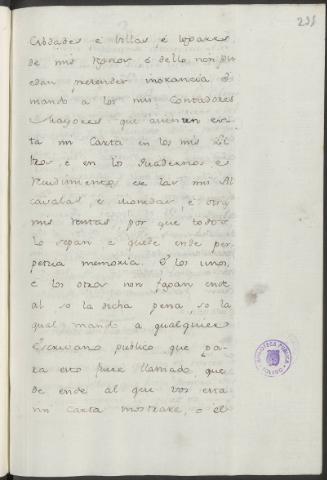 231
Cibdades é Villas é logares
de mis Reynos é dello non pu
edan pretender inorancia é
mando a los mis Contadores
Mayores que asienten esta
mi Carta en los mis Li
bros, é en los quadernos é
rendimiento de las mis Al
cavalas, é monedas, é otras
mis rentas, por que todos
lo sepan é quede ende per
petua memoria. É los unos,
é los otros non fagan ende
al so la dicha pena, so la
qual mando a qualquier
Escrivano publico que pa
ra esto fuere llamado que
de ende al que vos esta
mi Carta mostrare, o el
BIBLIOTECA PUBLICA
TOLEDO